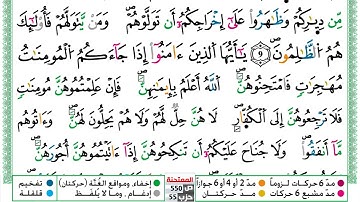 مِّن دِيَٰرِكُمْ وَظَٰهَرُواْ عَلَىٰٓ إِخْرَاجِكُمْ أَن تَوَلَّوْهُمْۚ وَمَن يَتَوَلَّهُمْ فَأُوْلَٰٓئِكَ
هُمُ ٱلظَّٰلِمُونَ ٩ يَٰٓأَيُّهَا ٱلَّذِينَ ءَامَنُوٓاْ إِذَا جَآءَكُمُ ٱلْمُؤْمِنَٰتُ
مُهَٰجِرَٰتٍ فَٱمْتَحِنُوهُنَّۖ ٱللَّهُ أَعْلَمُ بِإِيمَٰنِهِنَّۖ فَإِنْ عَلِمْتُمُوهُنَّ مُؤْمِنَٰتٍ
فَلَا تَرْجِعُوهُنَّ إِلَى ٱلْكُفَّارِۖ لَا هُنَّ حِلٌّ لَّهُمْ وَلَا هُمْ يَحِلُّونَ لَهُنَّۖ وَءَاتُوهُم
مَّآ أَنفَقُواْۚ وَلَا جُنَاحَ عَلَيْكُمْ أَن تَنكِحُوهُنَّ إِذَآ ءَاتَيْتُمُوهُنَّ أُجُورَهُنَّۚ
مدّ 6 حركات لزوماً مدّ 2 أو 4 أو 6 جوازاً الممتحنة ص 550 إخفاء، ومواقع الغُنَّة (حركتان) تفخيم
مدّ مشبع 6 حركات مدّ حركتان حزب 55 إدغام، وما لا يُلفَظ قلقلة